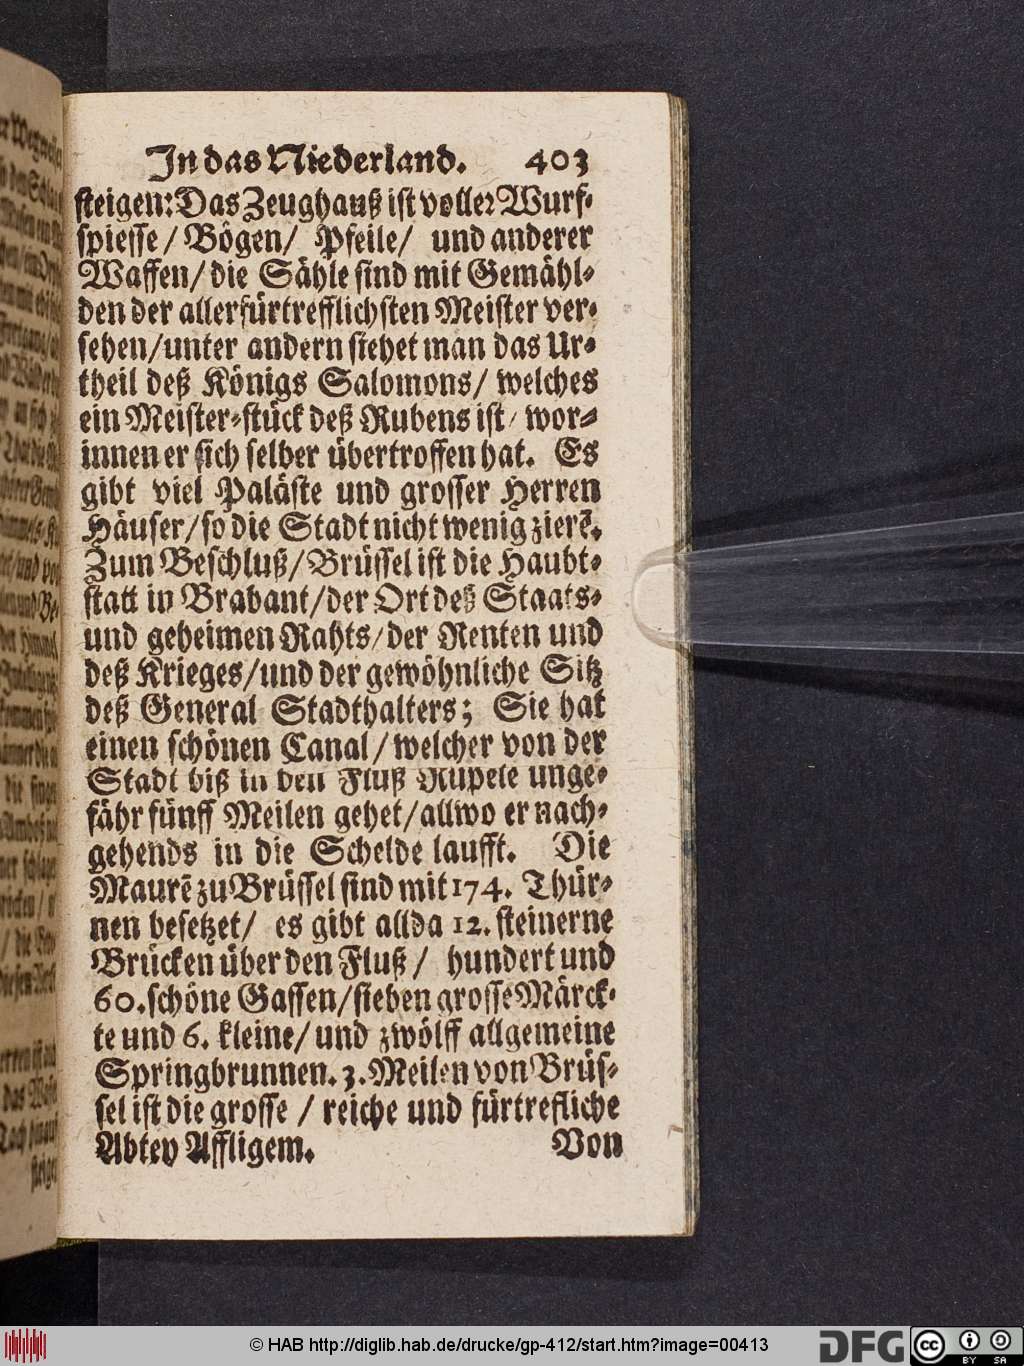 In das Niederland. 403
steigen: Das Zeughauß ist voller Wurf-
spiesse / Bögen / Pfeile / und anderer
Waffen / die Sähle sind mit Gemähl-
den der allerfürtrefflichsten Meister ver-
sehen / unter andern siehet man das Ur-
theil deß Königs Salomons / welches
ein Meister-stück deß Rubens ist / wor-
innen er sich selber übertroffen hat. Es
gibt viel Paläste und grosser Herren
Häuser / so die Stadt nicht wenig zierẽ.
Zum Beschluß / Brüssel ist die Haubt-
statt in Brabant / der Ort deß Staats-
und geheimen Rahts / der Renten und
deß Krieges / und der gewöhnliche Sitz
deß General Stadthalters; Sie hat
einen schönen Canal / welcher von der
Stadt biß in den Fluß Rupele unge-
fähr fünff Meilen gehet / allwo er nach-
gehends in die Schelde laufft. Die
Maurẽ zu Brüssel sind mit 174. Thür-
nen besetzet / es gibt allda 12. steinerne
Brücken über den Fluß / hundert und
60. schöne Gassen / sieben grosse Märck-
te und 6. kleine / und zwölff allgemeine
Springbrunnen. 3. Meilen von Brüs-
sel ist die grosse / reiche und fürtrefliche
Abtey Affligem. Von
© HAB http://diglib.hab.de/drucke/gp-412/start.htm?image=00413
DFG
cc
BY SA